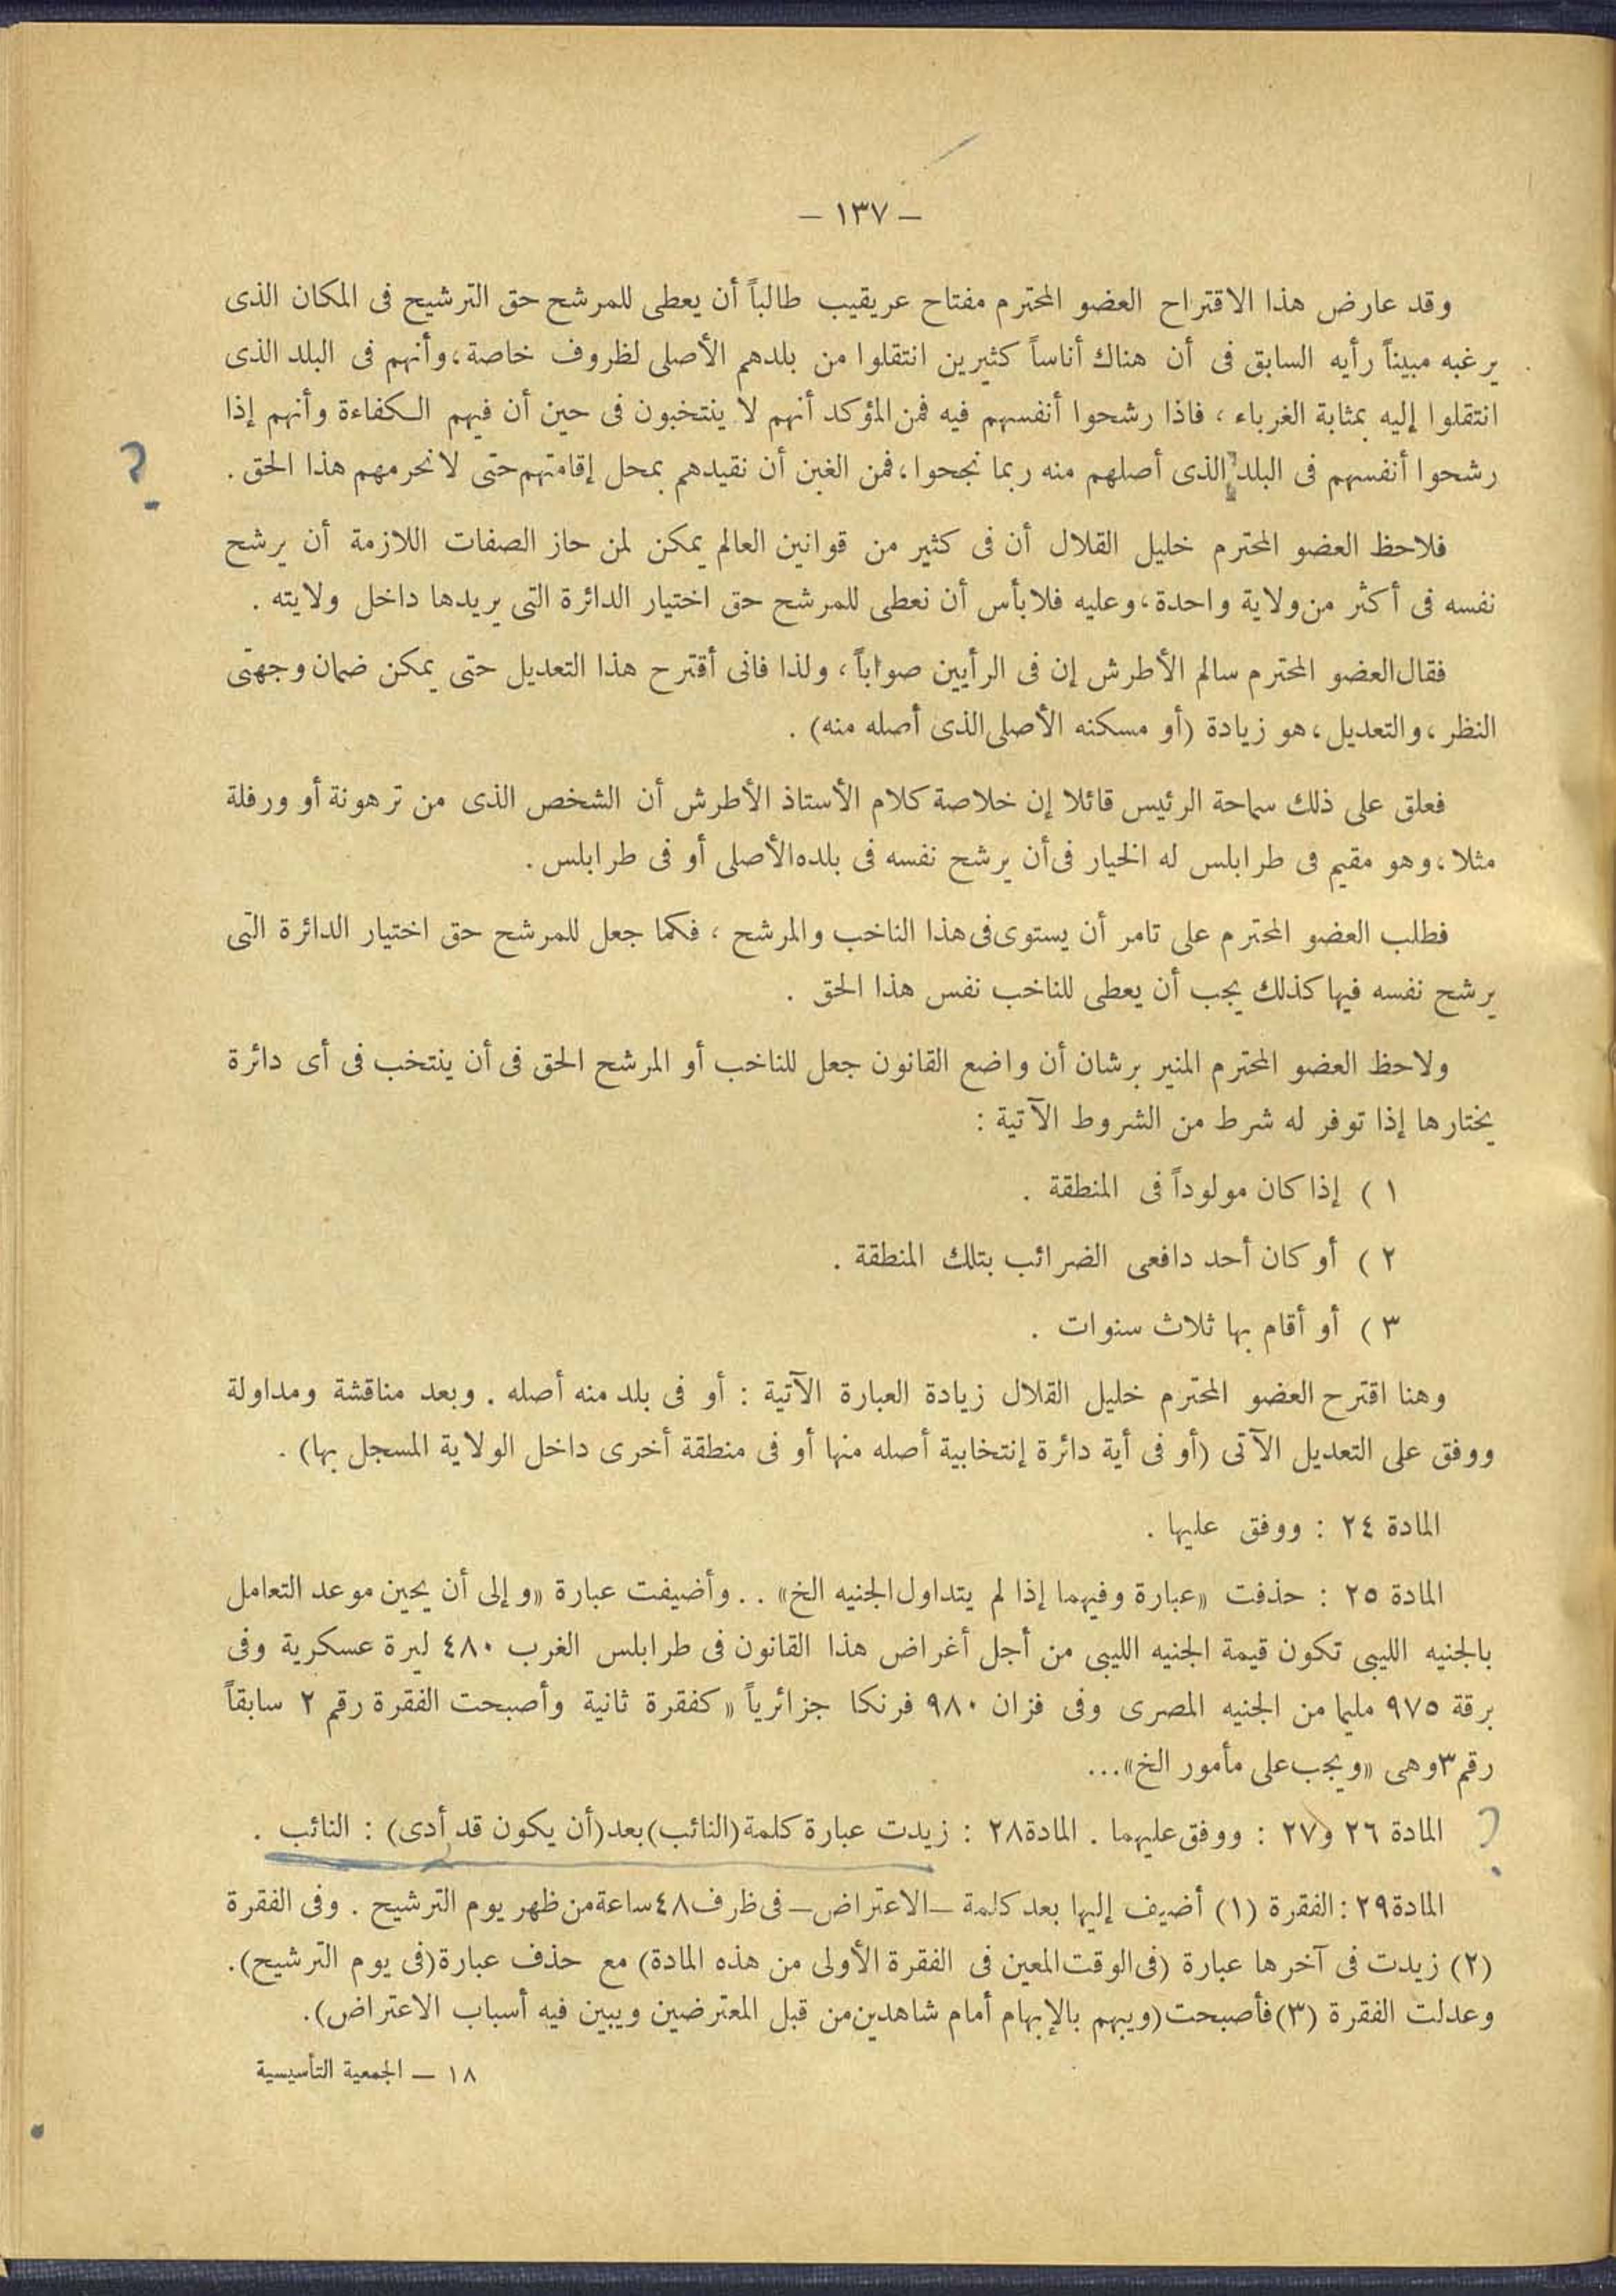 — ١٣٧ —
وقد عارض هذا الاقتراح العضو المحترم مفتاح عريقيب طالباً أن يعطى للمرشح حق الترشيح فى المكان الذى
يرغبه مبيناً رأيه السابق فى أن هناك أناساً كثيرين انتقلوا من بلدهم الأصلى لظروف خاصة، وأنهم فى البلد الذى
انتقلوا إليه بمثابة الغرباء، فاذا رشحوا أنفسهم فيه فمن المؤكد أنهم لا ينتخبون فى حين أن فيهم الكفاءة وأنهم إذا
رشحوا أنفسهم فى البلد الذى أصلهم منه ربما نجحوا، فمن الغبن أن نقيدهم بمحل إقامتهم حتى لا نحرمهم هذا الحق.
؟
فلاحظ العضو المحترم خليل القلال أن فى كثير من قوانين العالم يمكن لمن حاز الصفات اللازمة أن يرشح
نفسه فى أكثر من ولاية واحدة، وعليه فلا بأس أن نعطى للمرشح حق اختيار الدائرة التى يريدها داخل ولايته.
فقال العضو المحترم سالم الأطرش إن فى الرأيين صواباً، ولذا فانى أقترح هذا التعديل حتى يمكن ضمان وجهتى
النظر، والتعديل، هو زيادة (أو مسكنه الأصلى الذى أصله منه).
فعلق على ذلك سماحة الرئيس قائلا إن خلاصة كلام الأستاذ الأطرش أن الشخص الذى من ترهونة أو ورفلة
مثلا، وهو مقيم فى طرابلس له الخيار فى أن يرشح نفسه فى بلده الأصلى أو فى طرابلس.
فطلب العضو المحترم على تامر أن يستوى فى هذا الناخب والمرشح، فكما جعل للمرشح حق اختيار الدائرة التى
يرشح نفسه فيها كذلك يجب أن يعطى للناخب نفس هذا الحق.
ولاحظ العضو المحترم المنير برشان أن واضع القانون جعل للناخب أو المرشح الحق فى أن ينتخب فى أى دائرة
يختارها إذا توفر له شرط من الشروط الآتية :
١ ) إذا كان مولوداً فى المنطقة.
٢ ) أو كان أحد دافعى الضرائب بتلك المنطقة.
٣ ) أو أقام بها ثلاث سنوات.
وهنا اقترح العضو المحترم خليل القلال زيادة العبارة الآتية : أو فى بلد منه أصله. وبعد مناقشة ومداولة
ووفق على التعديل الآتى (أو فى أية دائرة إنتخابية أصله منها أو فى منطقة أخرى داخل الولاية المسجل بها).
المادة ٢٤ : ووفق عليها.
المادة ٢٥ : حذفت «عبارة وفيهما إذا لم يتداول الجنيه الخ».. وأضيفت عبارة «وإلى أن يحين موعد التعامل
بالجنيه الليبى تكون قيمة الجنيه الليبى من أجل أغراض هذا القانون فى طرابلس الغرب ٤٨٠ ليرة عسكرية وفى
برقة ٩٧٥ مليما من الجنيه المصرى وفى فزان ٩٨٠ فرنكا جزائرياً «كفقرة ثانية وأصبحت الفقرة رقم ٢ سابقاً
رقم ٣ وهى «ويجب على مأمور الخ»...
؟ المادة ٢٦ و٢٧ : ووفق عليهما. المادة ٢٨ : زيدت عبارة كلمة (النائب) بعد (أن يكون قد أدى) : النائب.
المادة ٢٩ : الفقرة (١) أضيف إليها بعد كلمة — الاعتراض — فى ظرف ٤٨ ساعة من ظهر يوم الترشيح. وفى الفقرة
(٢) زيدت فى آخرها عبارة (فى الوقت المعين فى الفقرة الأولى من هذه المادة) مع حذف عبارة (فى يوم الترشيح).
وعدلت الفقرة (٣) فأصبحت (ويبهم بالإبهام أمام شاهدين من قبل المعترضين ويبين فيه أسباب الاعتراض).
١٨ — الجمعية التأسيسية